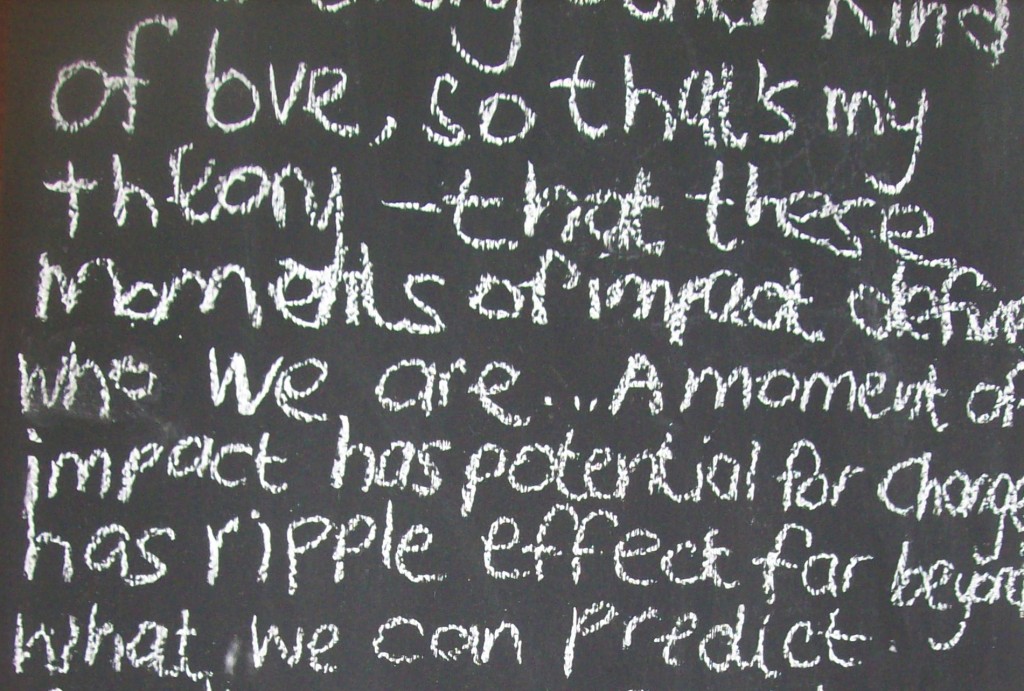 kind
of love, so that's my
theory - that these
moments of impact define
who we are... A moment of
impact has potential for change
has ripple effect far beyond
what we can predict.